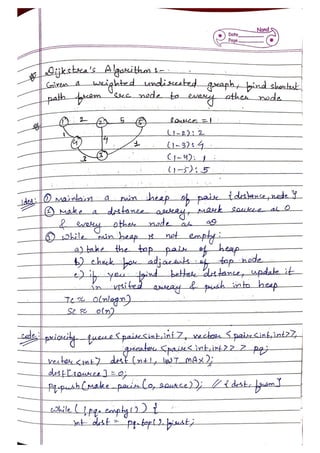 Nandi
Date
Page
Dijkstra's Algorithm :-
Given a weighted undirected graph, find shortest
path from src node to every other node.
1 2 2 5 5
source = 1
(1-2): 2
4 4 1
(1-3): 4
3 3
(1-4): 1
(1-5): 5
idea: ① Maintain a min heap of pair {distance, node}
② Make a distance array, mark source as 0
& every other node as ∞
③ While min heap is not empty:
a) take the top pair of heap
b) check for adjacents of top node
c) if you find better distance, update it
in visited array & push into heap
TC ≈ O(nlogn)
SC ≈ O(n)
code: priority_queue<pair<int,int>, vector<pair<int,int>>,
greater<pair<int,int>>> pq;
vector<int> dist(n+1, INT_MAX);
dist[source] = 0;
pq.push(make_pair(0, source)); // {dist, from}
while(!pq.empty()) {
int dist = pq.top().first;